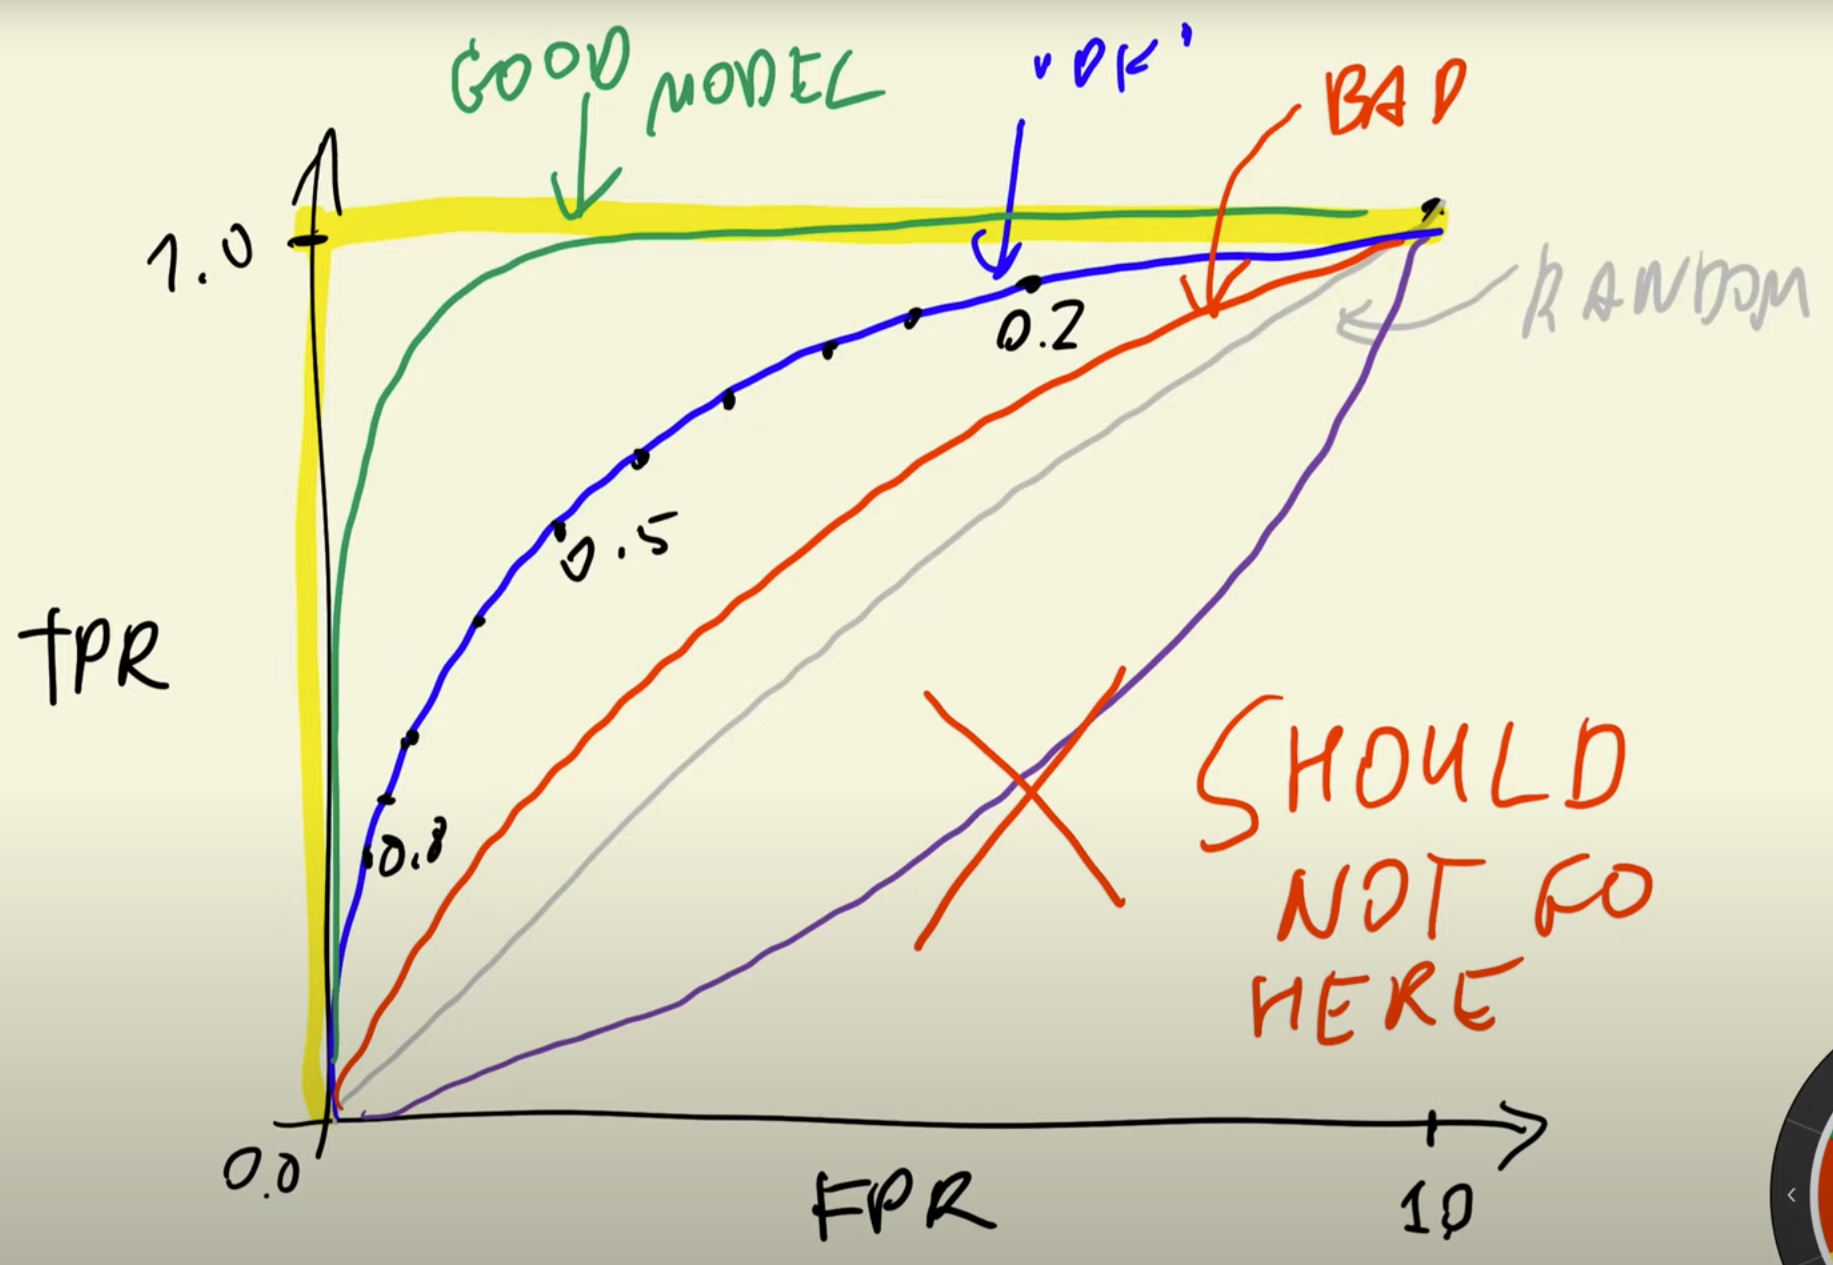 GOOD MODEL
"OK"
BAD
1.0
RANDOM
0.2
0.5
TPR
0.8
SHOULD
NOT GO
HERE
0.0
FPR
10